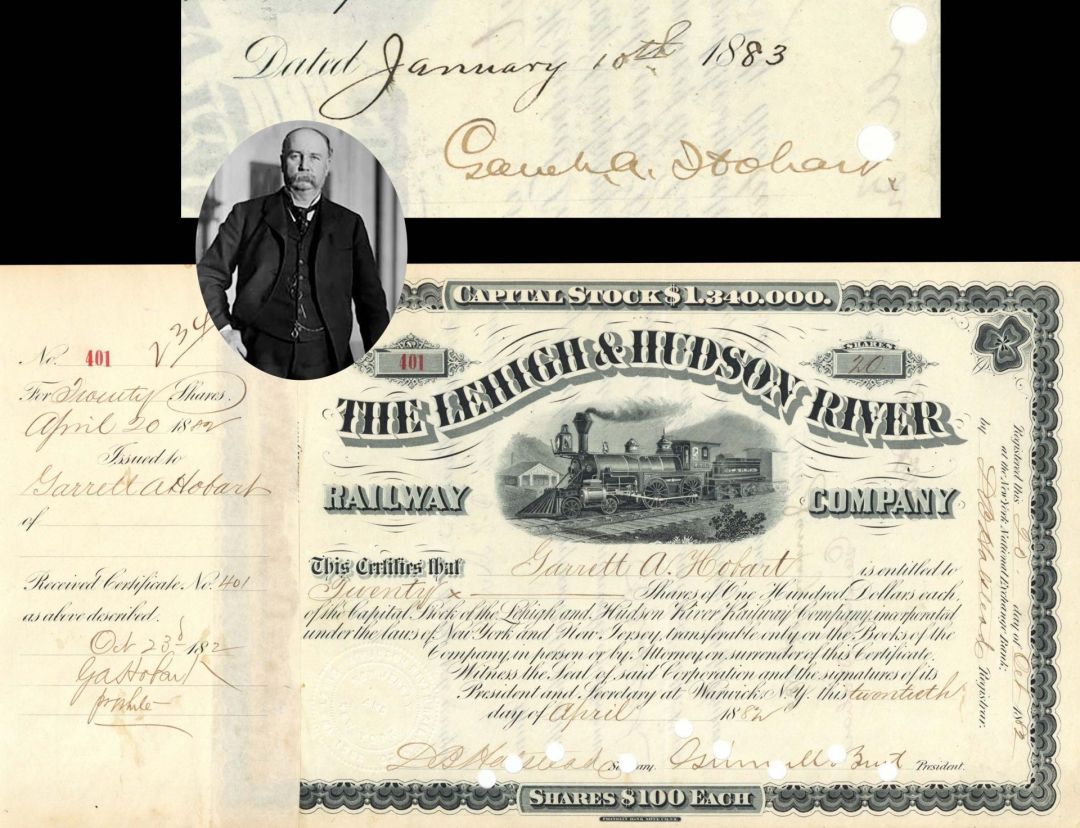 Dated January 10th 1883
Garret A. Hobart.
No. 401
234
For Twenty Shares.
April 20 1882
Issued to
Garrett A Hobart
of
Received Certificate No. 401
as above described.
Oct 23d 1882
G A Hobart
CAPITAL STOCK $1.340.000.
401
SHARES
20
THE LEHIGH & HUDSON RIVER
RAILWAY COMPANY
This Certifies that Garrett A. Hobart is entitled to
Twenty x Shares of One Hundred Dollars each,
of the Capital Stock of the Lehigh and Hudson River Railway Company, incorporated
under the laws of New York and New Jersey, transferable only on the Books of the
Company, in person or by Attorney, on surrender of this Certificate.
Witness the Seal of said Corporation and the signatures of its
President and Secretary at Warwick, N.Y. this twentieth
day of April 1882
Secretary. Grinnell Burt President.
SHARES $100 EACH
FRANKLIN BANK NOTE CO. N.Y.
Registered this 23 day of Oct 1882
at the New York National Exchange Bank:
by Registrar.